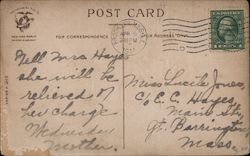 POST CARD
FOR CORRESPONDENCE
FOR ADDRESS ONLY
Tell Mrs Hayes
she will be
relieved of
her charge
Wednesday
Mother.
Miss Lucile Jones,
C/o E. C. Hayes,
Main St,
Gt. Barrington,
Mass.